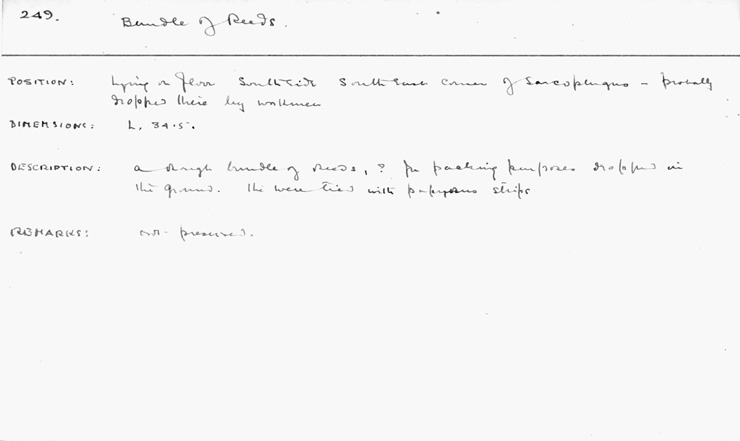 249. Bundle of Reeds.
POSITION: Lying on floor South side South East corner of Sarcophagus – probably
dropped there by workmen
DIMENSIONS: L. 34.5.
DESCRIPTION: a rough bundle of reeds, ? for packing purposes dropped on
the ground. The were tied with papyrus strips
REMARKS: not preserved.